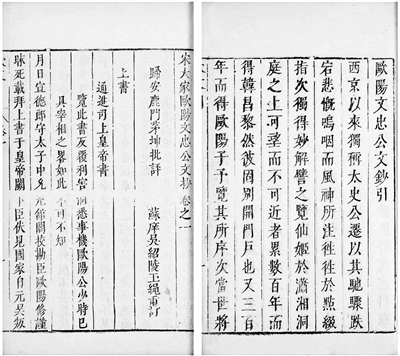 歐陽文忠公文鈔引
西京以來獨稱太史公遷以其馳驟跌
宕悲慨嗚咽而風神所注往往於點綴
指次獨得妙解譬之覽仙姬於瀟湘洞
庭之上可望而不可近者累數百年而
得韓昌黎然彼固別開門戶也又三百
年而得歐陽子予覽其所序次當世將
宋大家歐陽文忠公文抄卷之一
歸安鹿門茅坤批評 蘇庠吳紹陵王繩重訂
上書
通進司上皇帝書
覽此書反覆利害洞悉事機歐陽公少時已
具宰相之略如此不可不知
月日宣德郎守太子中允充館閣校勘臣歐陽脩謹
昧死載拜上書于皇帝闕下臣伏見國家自元昊叛